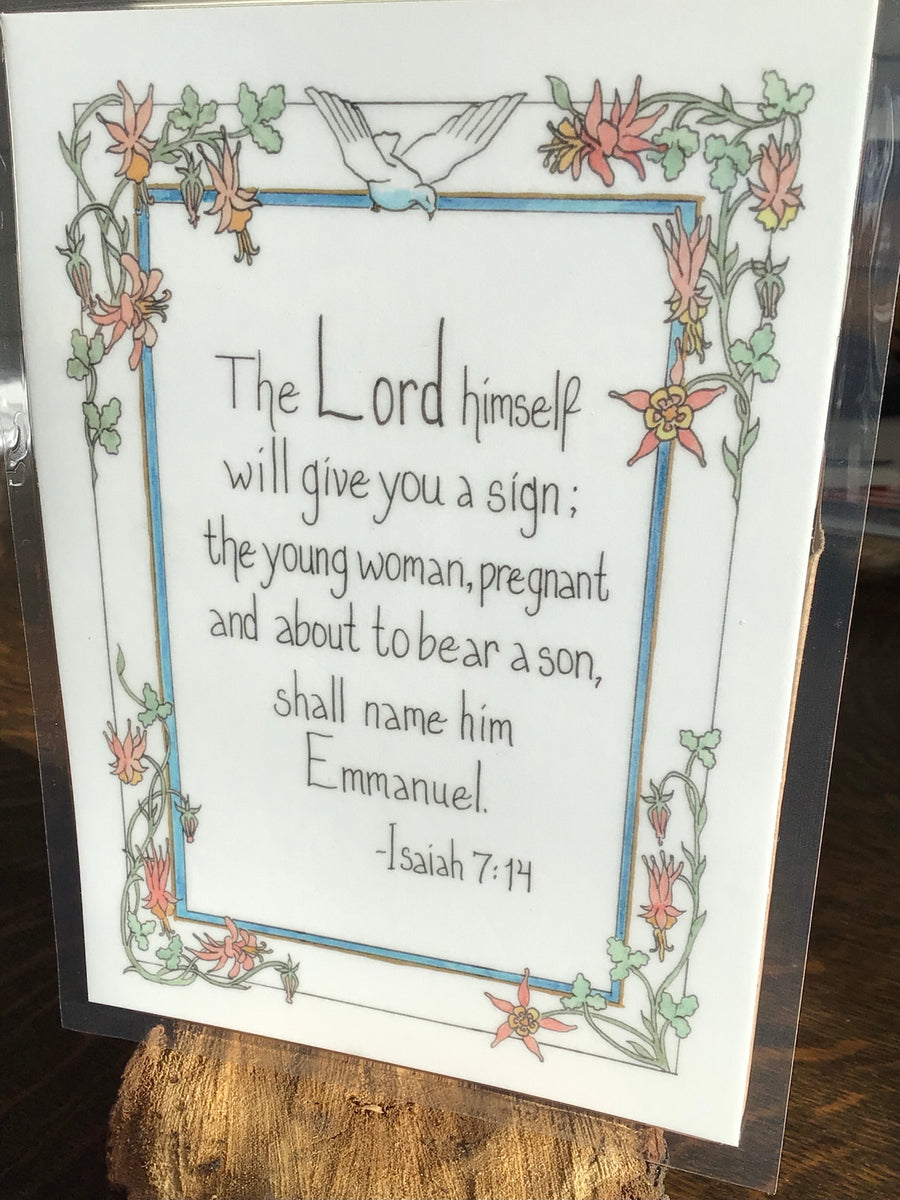 The Lord himself
will give you a sign;
the young woman, pregnant
and about to bear a son,
shall name him
Emmanuel.
-Isaiah 7:14